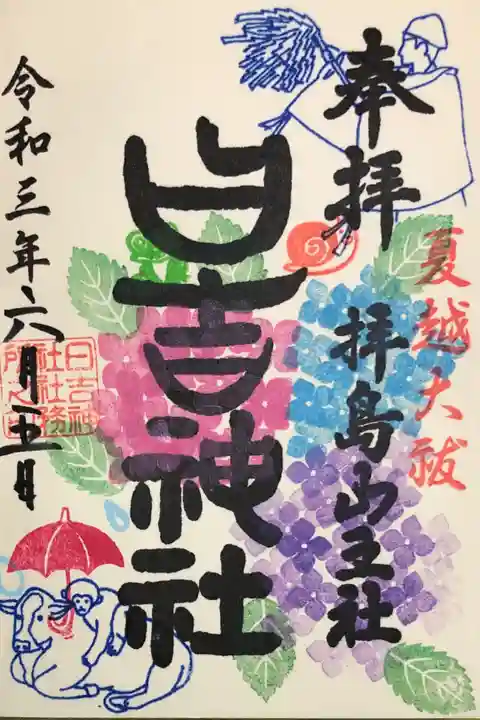 奉拝
夏越大祓
拝島山王社
日吉神社
日吉神
社社務
所之印
令和三年六月五日